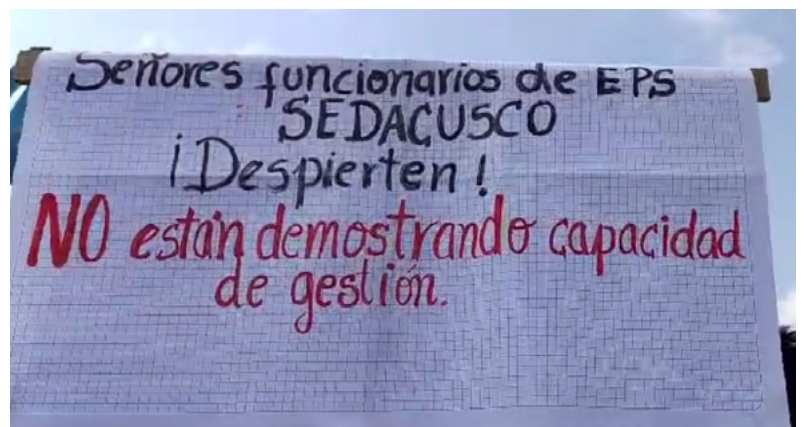 Señores funcionarios de EPS
SEDACUSCO
¡Despierten!
NO están demostrando capacidad
de gestión.